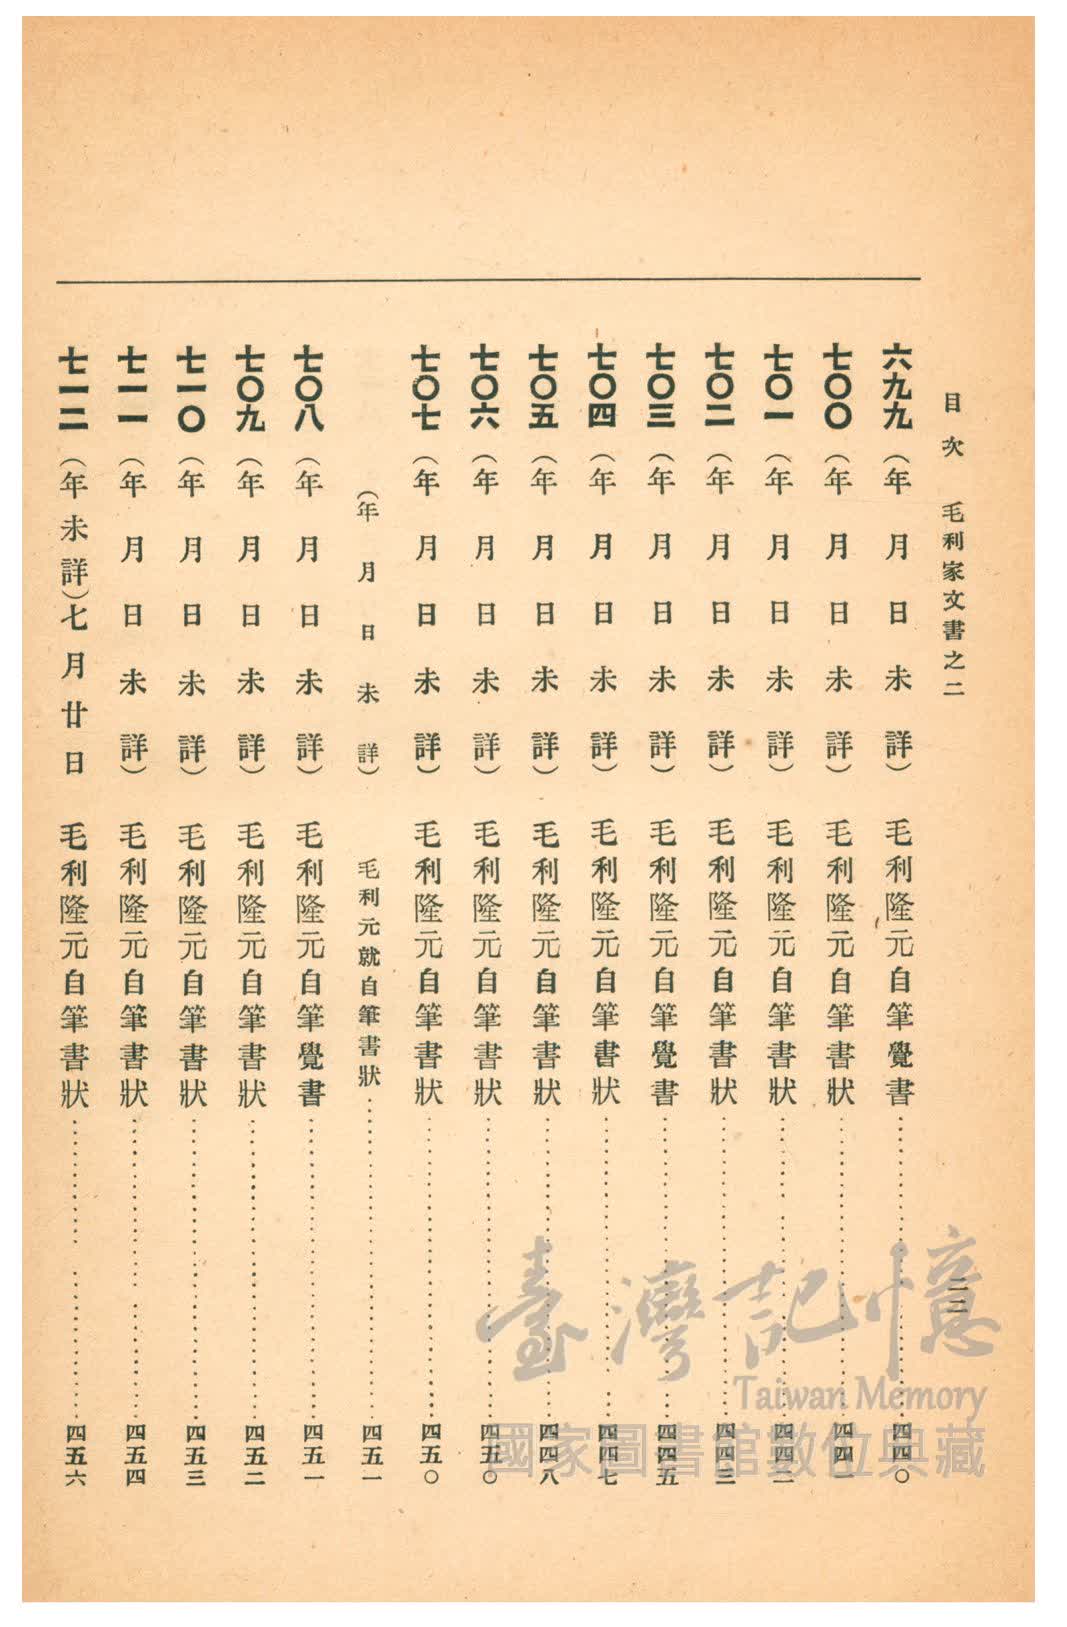 目次 毛利家文書之二 二二
六九九 (年月日未詳) 毛利隆元自筆覺書 四四〇
七〇〇 (年月日未詳) 毛利隆元自筆書狀 四四一
七〇一 (年月日未詳) 毛利隆元自筆書狀 四四二
七〇二 (年月日未詳) 毛利隆元自筆書狀 四四三
七〇三 (年月日未詳) 毛利隆元自筆覺書 四四五
七〇四 (年月日未詳) 毛利隆元自筆書狀 四四七
七〇五 (年月日未詳) 毛利隆元自筆書狀 四四八
七〇六 (年月日未詳) 毛利隆元自筆書狀 四五〇
七〇七 (年月日未詳) 毛利隆元自筆書狀 四五〇
(年月日未詳) 毛利元就自筆書狀 四五一
七〇八 (年月日未詳) 毛利隆元自筆覺書 四五一
七〇九 (年月日未詳) 毛利隆元自筆書狀 四五二
七一〇 (年月日未詳) 毛利隆元自筆書狀 四五三
七一一 (年月日未詳) 毛利隆元自筆書狀 四五四
七一二 (年未詳)七月廿日 毛利隆元自筆書狀 四五六
臺灣記憶
Taiwan Memory
國家圖書館數位典藏